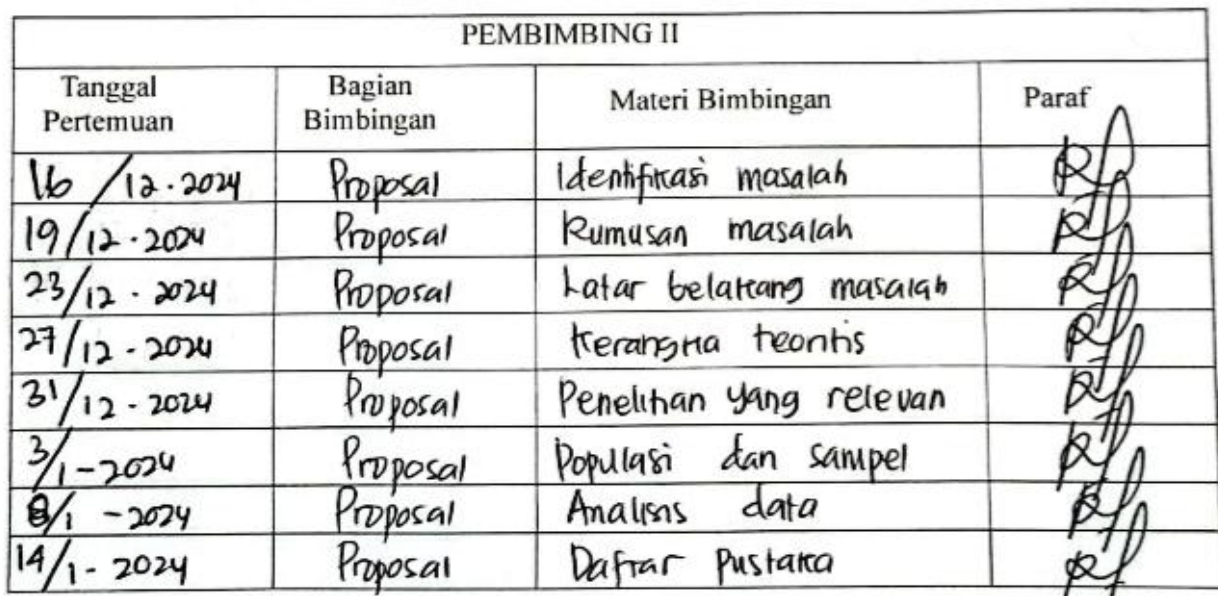 PEMBIMBING II
Tanggal Pertemuan Bagian Bimbingan Materi Bimbingan Paraf
16/12.2024 Proposal Identifikasi masalah
19/12.2024 Proposal Rumusan masalah
23/12.2024 Proposal Latar belakang masalah
27/12-2024 Proposal Kerangka teoritis
31/12-2024 Proposal Penelitian yang relevan
3/1-2024 Proposal Populasi dan sampel
8/1-2024 Proposal Analisis data
14/1-2024 Proposal Daftar Pustaka